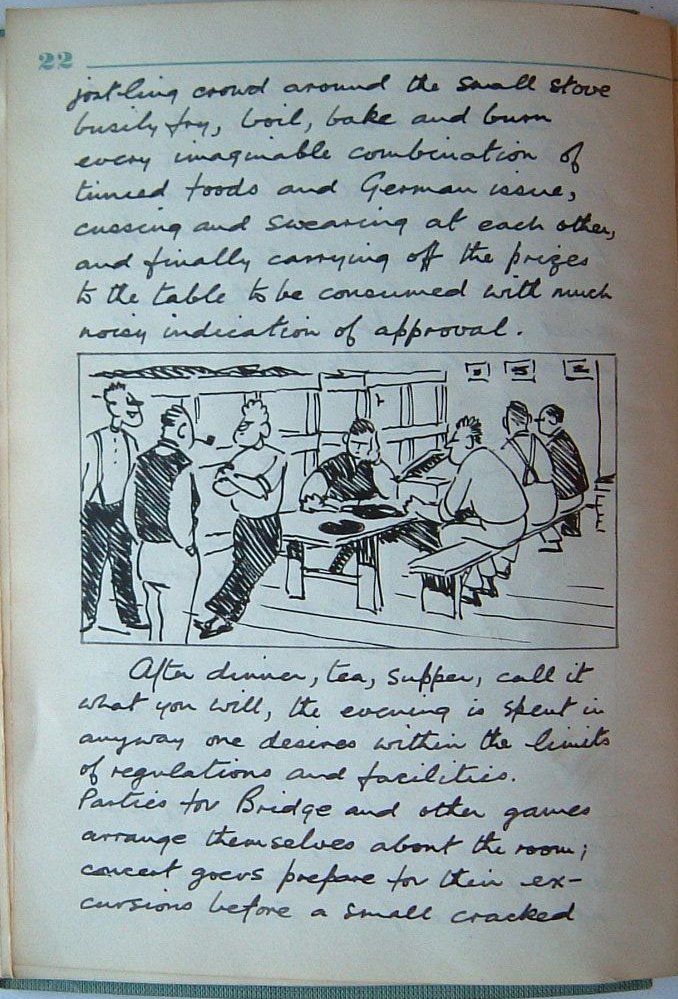 22
jostling crowd around the small stove
busily fry, boil, bake and burn
every imaginable combination of
tinned foods and German issue,
cussing and swearing at each other,
and finally carrying off the prizes
to the table to be consumed with much
noisy indication of approval.
After dinner, tea, supper, call it
what you will, the evening is spent in
anyway one desires within the limits
of regulations and facilities.
Parties for Bridge and other games
arrange themselves about the room;
concert goers prepare for their ex-
cursions before a small cracked